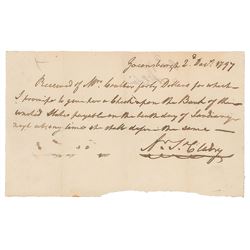 Greensburgh 2d Decr. 1797
Received of Mr. Coulter forty Dollars for which
I promise to give him a Check upon the Bank of the
United States payable on the tenth day of January
next at any time he shall desire the same —
Ar. St. Clair